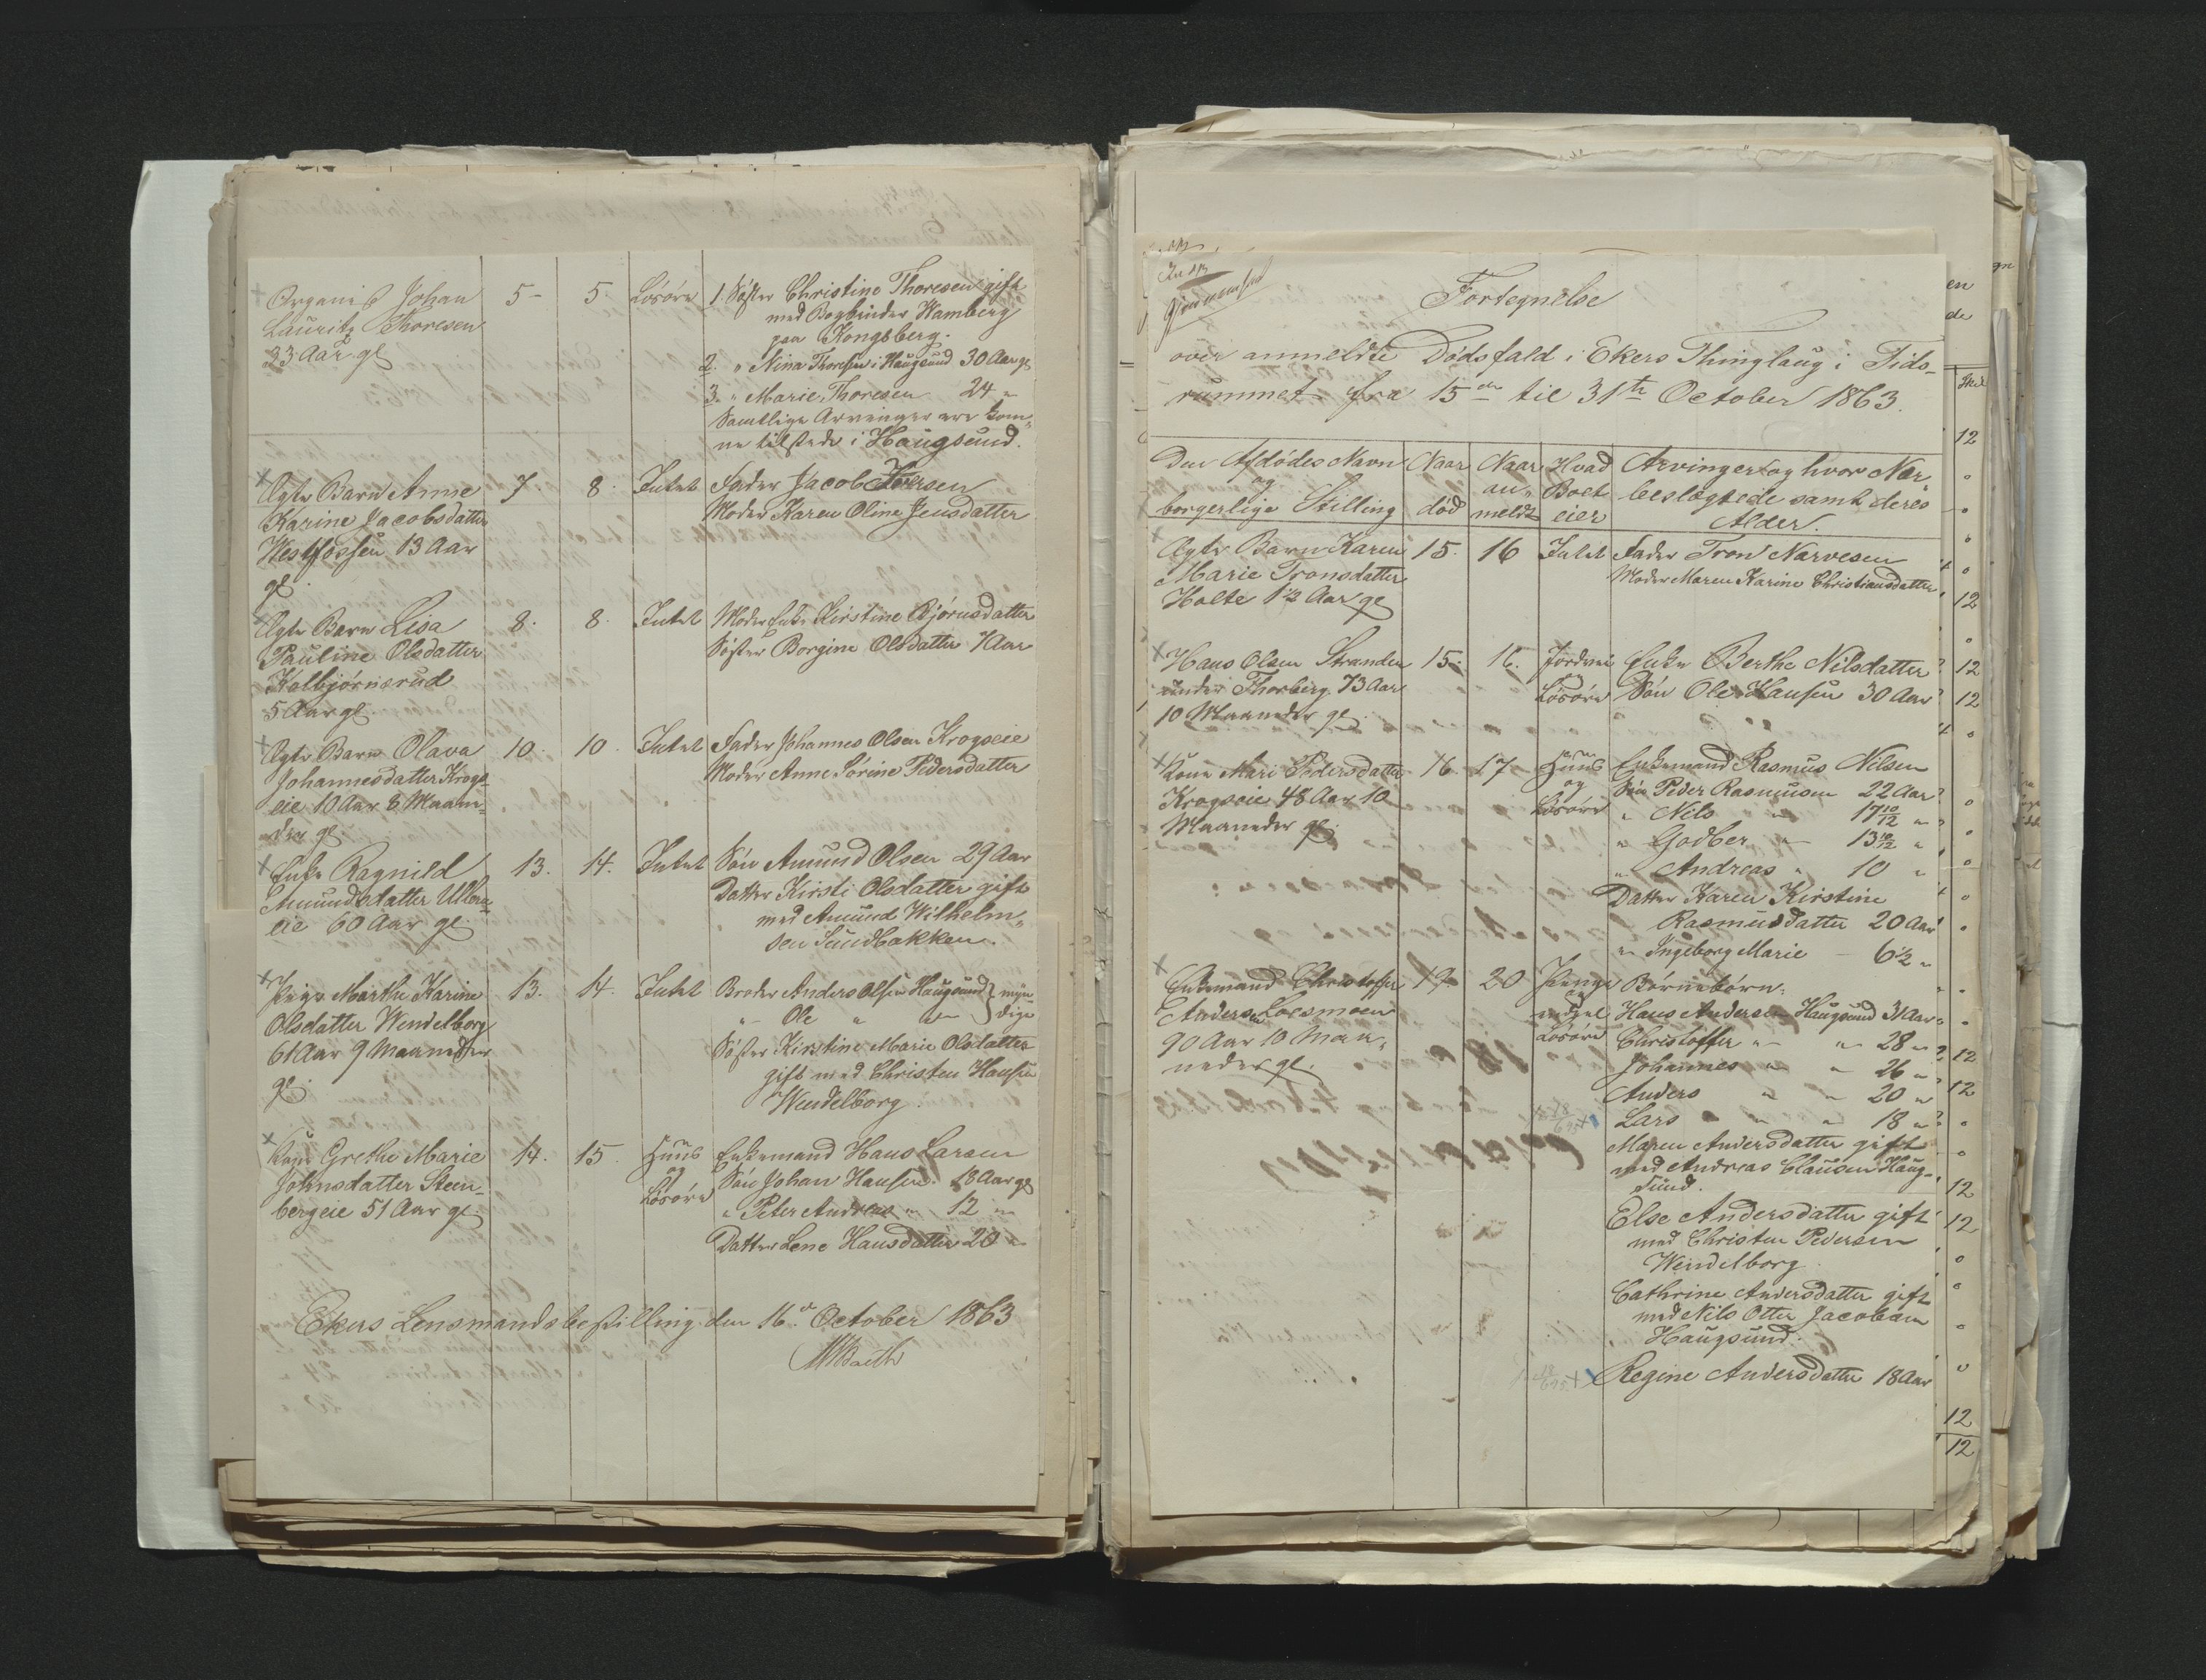 Organist Johan
Lauritz Thoresen
33 Aar gl
5 - 5. Løsøre
1. Søster Christine Thoresen gift
med Bogbinder Hamberg
paa Kongsberg.
2. " Nina Thoresen i Haugsund 30 Aar gl
3. " Marie Thoresen 24 "
Samtlige Arvinger ere kom-
ne tilstede i Haugsund.
Ægte Barn Anne
Karine Jacobsdatter
Westfossen 13 Aar
gl.
7. 8. Intet
Fader Jacob Iversen
Moder Karen Oline Jensdatter
Ægte Barn Lisa
Pauline Olsdatter
Kolbjørnsrud
5 Aar gl.
8. 8. Intet
Moder Enke Kirstine Bjørnsdatter
Søster Borgine Olsdatter 7 Aar
Ægte Barn Olava
Johannesdatter Krogs-
eie 10 Aar 8 Maan-
eder gl.
10. 10. Intet
Fader Johannes Olsen Krogseie
Moder Anne Sørine Pedersdatter
Enke Ragnild
Amundsdatter Ullern-
eie 60 Aar gl.
13. 14. Intet
Søn Amund Olsen 29 Aar
Datter Kirsti Olsdatter gift
med Amund Wilhelm-
sen Sundbakken.
Pige Marthe Karine
Olsdatter Wendelborg
61 Aar 9 Maaneder
gl.
13. 14. Intet
Broder Anders Olsen Haugsund } myn-
" Ole " " } dige
Søster Kirstine Marie Olsdatter
gift med Christen Hansen
Wendelborg.
Kone Grethe Marie
Johnsdatter Steen-
bergeie 51 Aar gl.
14. 15. Huus
og
Løsøre
Enkemand Hans Larsen
Søn Johan Hansen. 18 Aar gl
" Peter Andreas " 12 "
Datter Lene Hansdatter 20 "
Ekers Lensmandsbestilling den 16de October 1863
Fortegnelse
over anmeldte Dødsfald i Ekers Thinglaug i Tids-
rummet fra 15de til 31te October 1863.
Den Afdødes Navn
og
borgerlige Stilling
Naar
død
Naar
an-
meldt
Hvad
Boet
eier
Arvinger og hvor Nær-
beslægtede samt deres
Alder.
Ægte Barn Karen
Marie Tronsdatter
Holte 1 1/2 Aar gl
15. 16 Intet
Fader Tron Narvesen
Moder Maren Karine Christiansdatter
Hans Olsen Stranden
under Thorberg 73 Aar
10 Maaneder gl.
15. 16. Jordvei
og
Løsøre
Enke Berthe Nilsdatter
Søn Ole Hansen 30 Aar
Kone Mari Pedersdatter
Krogseie 48 Aar 10
Maaneder gl.
16 17 Huus
og
Løsøre
Enkemand Rasmus Nilsen
Søn Peder Rasmusen 22 Aar
" Nils " 17 10/12 "
" Godber " 13 10/12 "
" Andreas " 10 "
Datter Karen Kirstine
Rasmusdatter 20 Aar
" Ingeborg Marie - 6 1/2 "
Enkemand Christoffer
Andersen Loesmoen
90 Aar 10 Maa-
neder gl.
19 20 Penge
og
Løsøre
Børnebørn:
Hans Andersen Haugsund 31 Aar
Christoffer " " 28 "
Johannes " " 26 "
Anders " " 20 "
Lars " " 18 "
Maren Andersdatter gift
med Andreas Clausen Haug-
sund.
Else Andersdatter gift
med Christen Pedersen
Wendelborg
Cathrine Andersdatter gift
med Nils Otter Jacobsen
Haugsund.
Regine Andersdatter 18 Aar